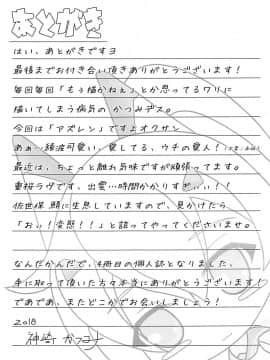 あとがき
はい、あとがきですヨ
最後までお付き合い頂きありがとうございます!
毎回毎回「もう描かねぇ」とか思ってるワリに
描いてしまう病気の かつみデス。
今回は「アズレン」ですよオクサン
あぁ…綾波可愛い、愛してる、ウチの愛人!
最近は、ちょっと離れ気味ですが頑張ってます。
重桜ラヴです、出雲…時間かかりすぎぃぃ!!
佐世保鯖に生息していますので、見かけたら
「おい!変態!!」と詰ってやってくださいませ。
なんだかんだで、4冊目の個人誌となりました、
手に取って頂いた方々本当にありがとうございます!
であであ、またどこかでお会いしましょう!
2018
神崎 かつみ